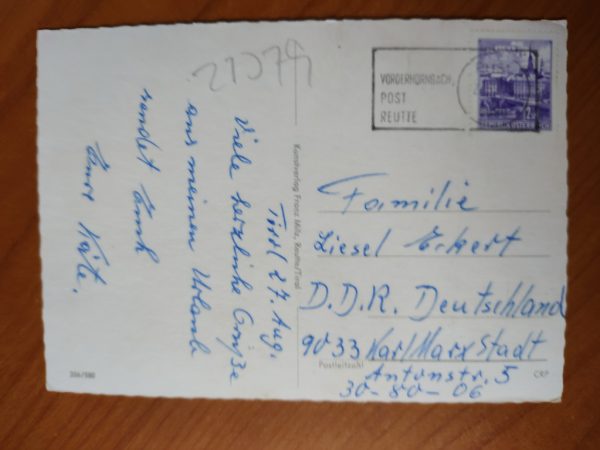 21579
VORDERHORNBACH,
POST
REUTTE
2
REPUBLIK ÖSTERREICH
Tirol 27. Aug.
Viele herzliche Grüße
aus meinen Urlaub
sendet Euch
Eure Käte.
Kunstverlag Franz Milz, Reutte/Tirol
Familie
Liesel Eckert
D.D.R. Deutschland
9033 Karl Marx Stadt
Postleitzahl
Antonstr. 5
30-80-06
356/580